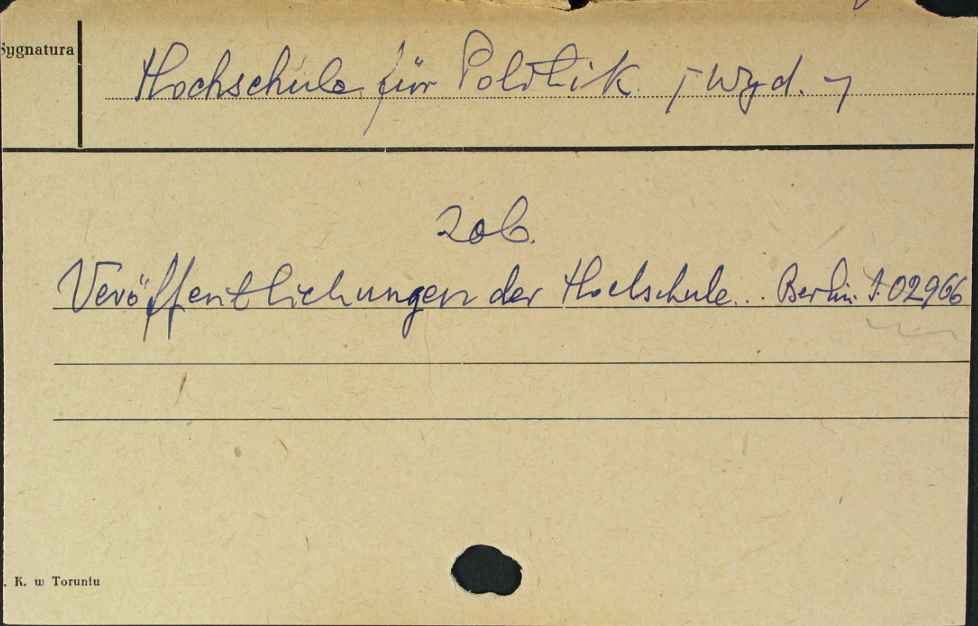 Sygnatura
Hochschule für Politik [Wyd.]
Zob.
Veröffentlichungen der Hochschule... Berlin. J. 02966
. K. w Toruniu